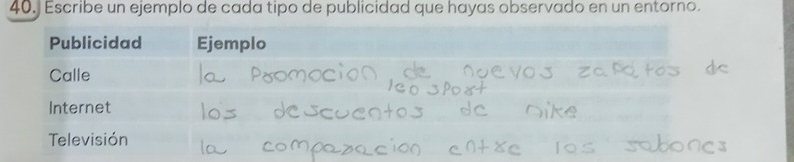 40. Escribe un ejemplo de cada tipo de publicidad que hayas observado en un entorno.
Publicidad Ejemplo
Calle la promocion de nuevos zapatos de
leo sport
Internet los descuentos de nike
Televisión la comparacion entre los sabones